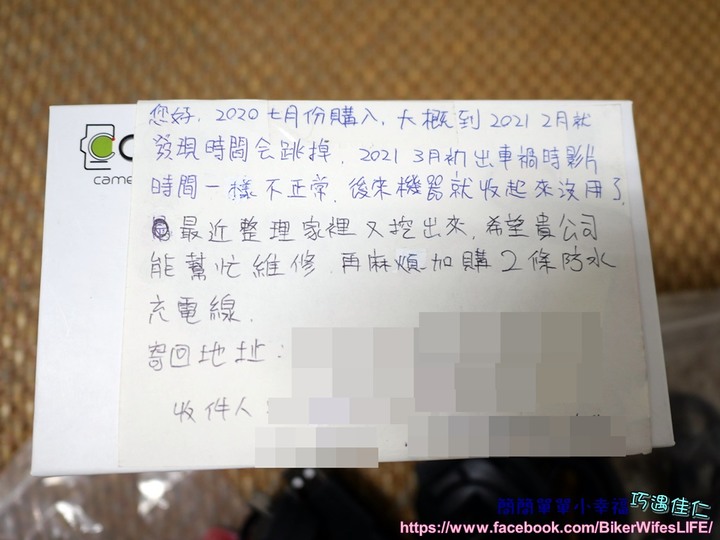 您好，2020 七月份購入，大概到 2021 2月就
發現時間会跳掉，2021 3月初出車禍時影片
時間一樣不正常，後來機器就收起來沒用了。
最近整理家裡又挖出來，希望貴公司
能幫忙維修，再麻煩加購 2 條防水
充電線。
寄回地址：
收件人：
came
簡簡單單小幸福 巧遇佳仁
https://www.facebook.com/BikerWifesLIFE/